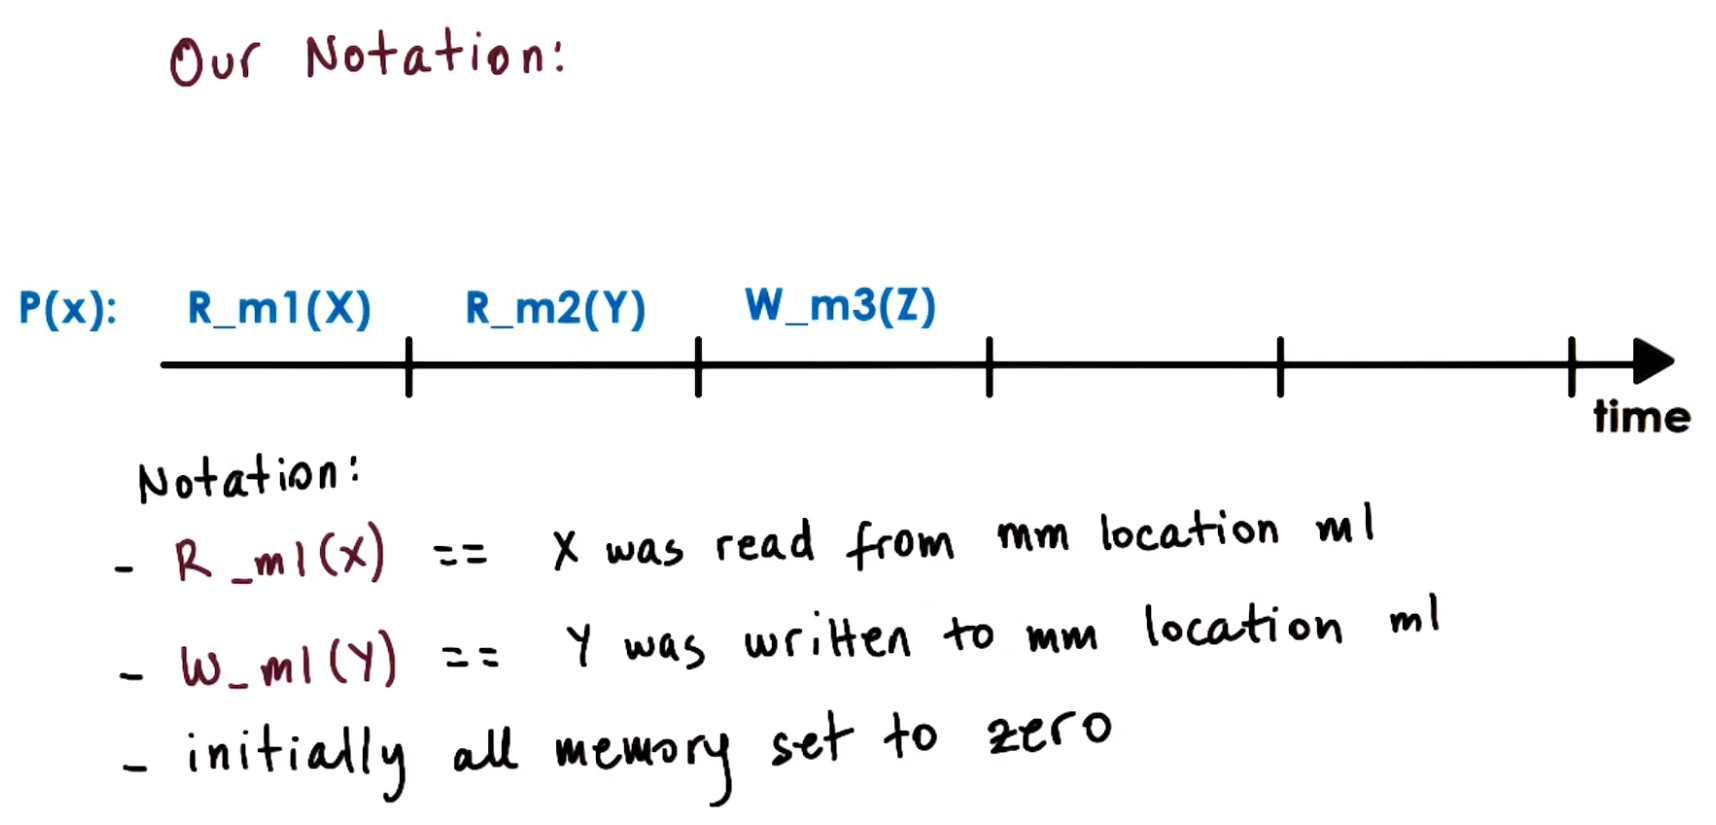 Our Notation:
P(x): R_m1(X) R_m2(Y) W_m3(Z)
time
Notation:
- R_m1(x) == X was read from mm location m1
- W_m1(Y) == Y was written to mm location m1
- initially all memory set to zero